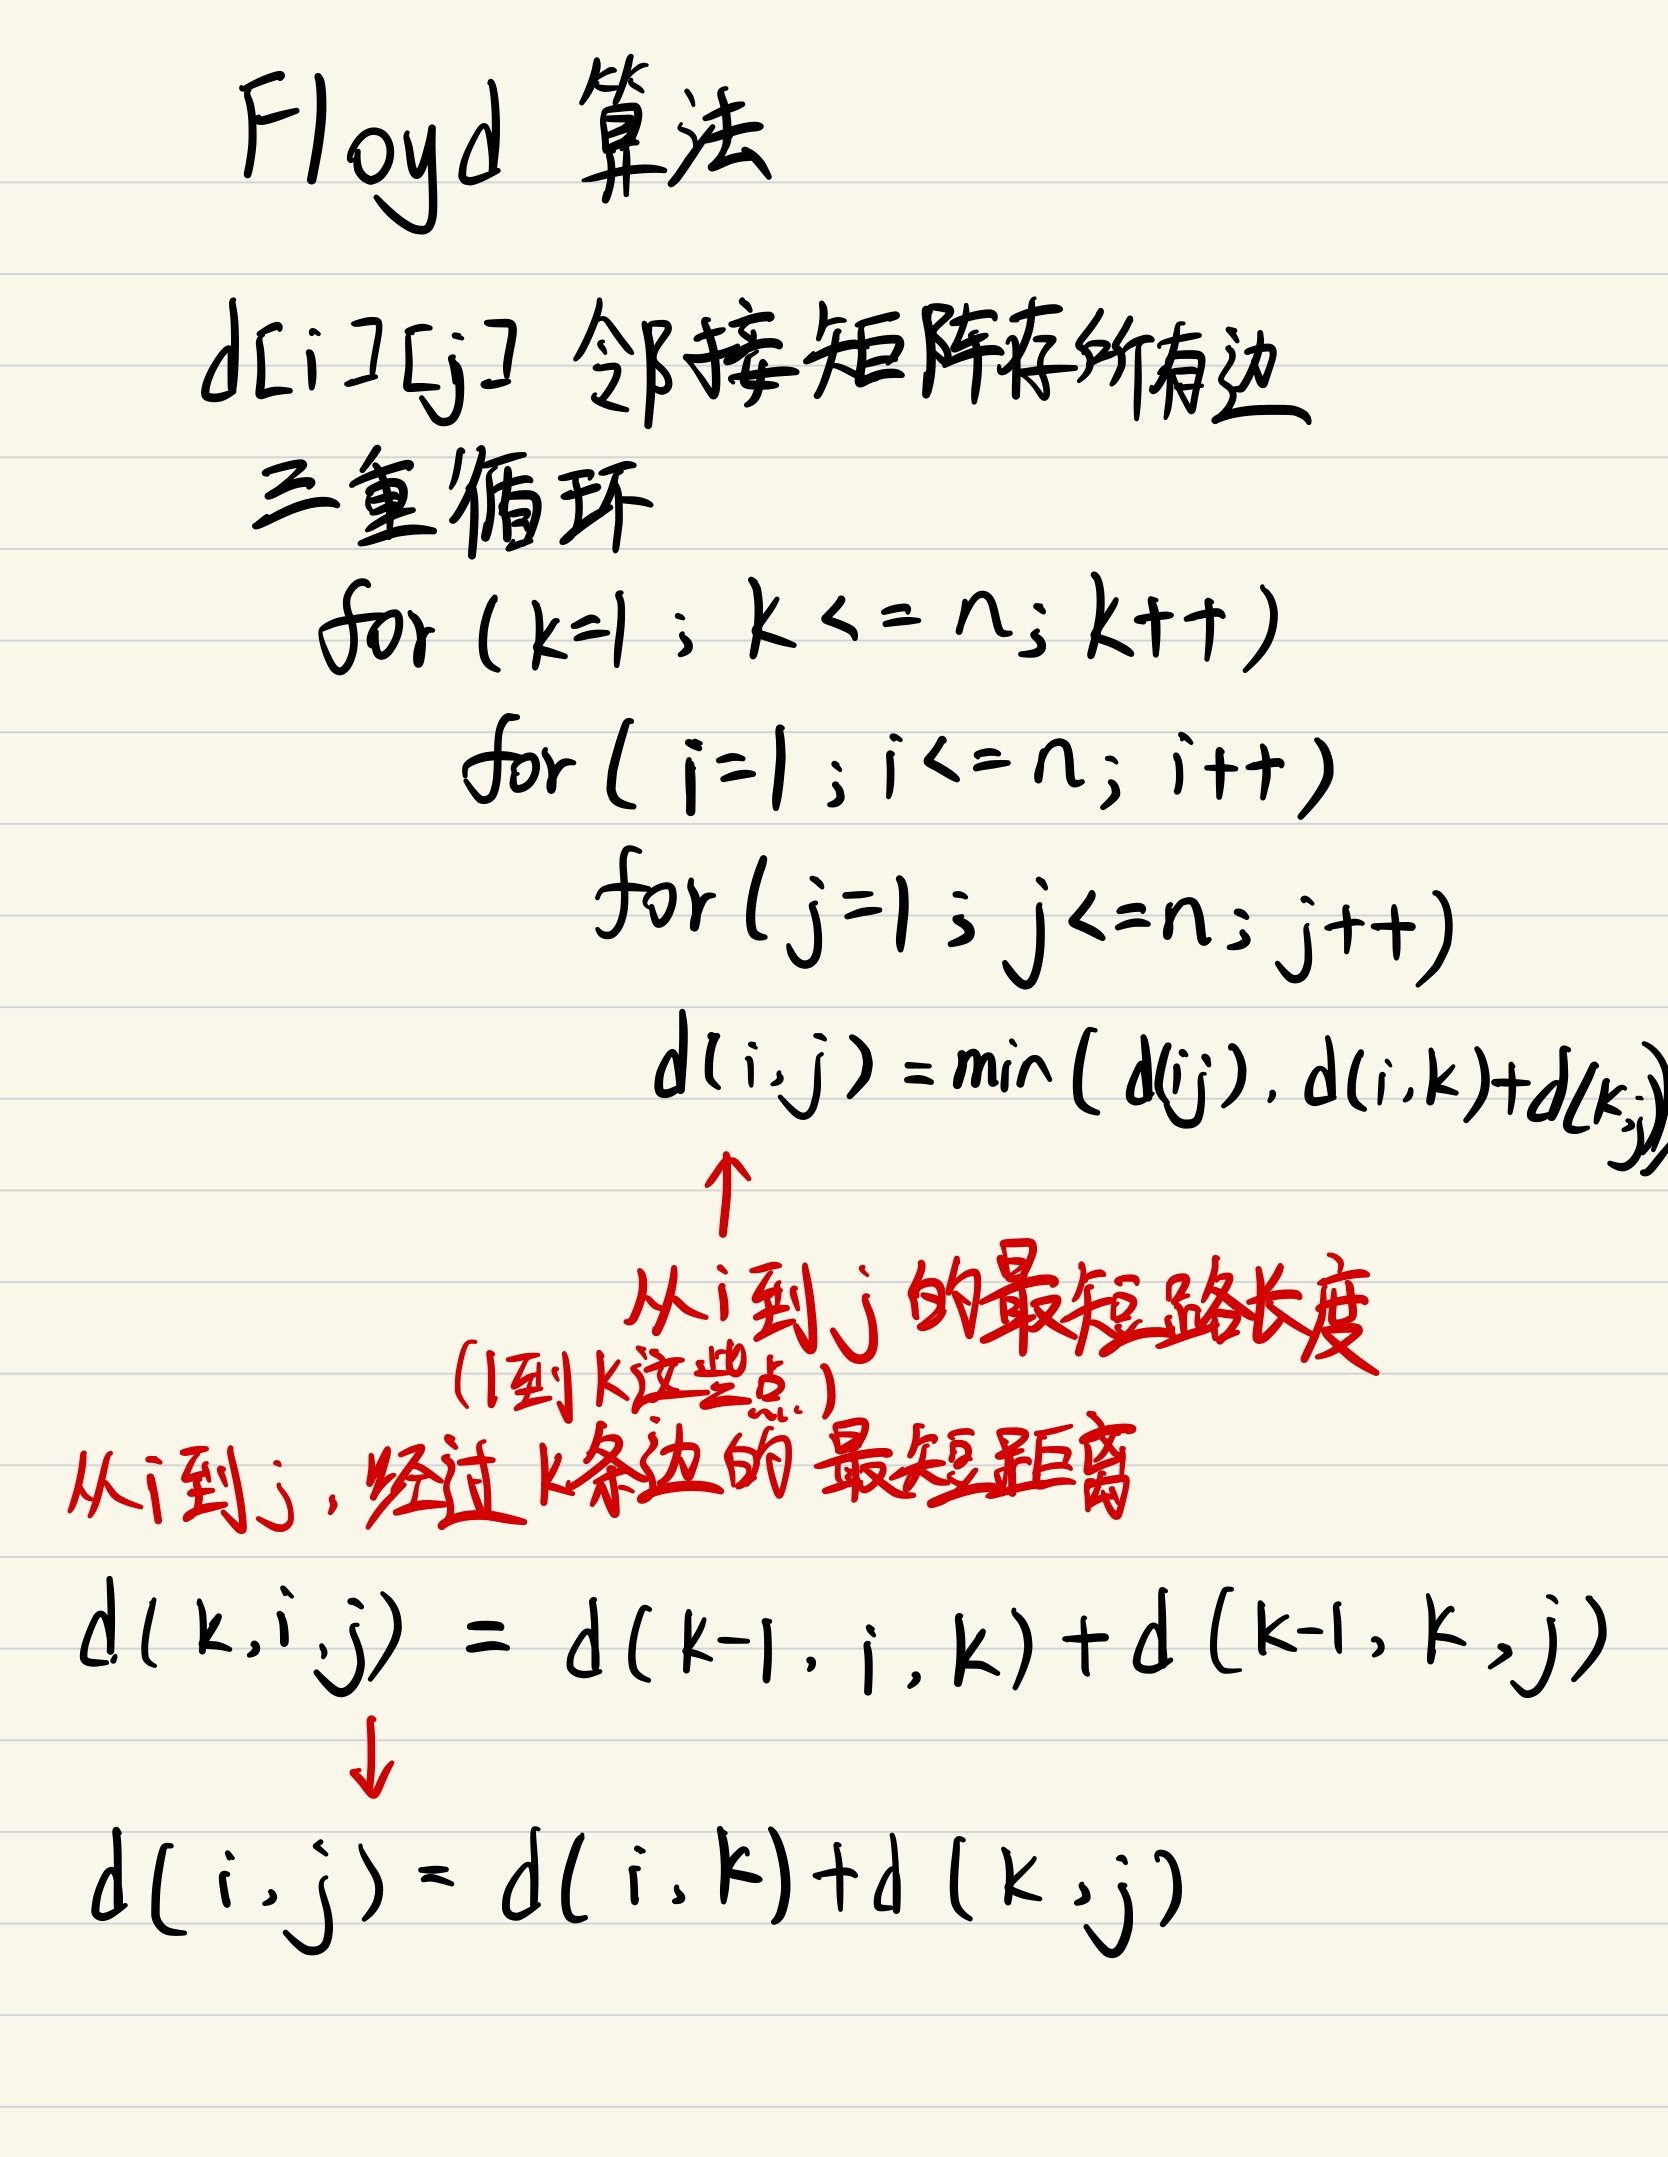 Floyd 算法
d[i][j] 邻接矩阵存所有边
三重循环
for (k=1; k<=n; k++)
for (i=1; i<=n; i++)
for (j=1; j<=n; j++)
d(i,j) = min(d(ij), d(i,k)+d(k,j))
↑
从i到j的最短路长度
(1到k这些点)
从i到j,经过k条边的最短距离
d(k,i,j) = d(k-1,i,k)+d(k-1,k,j)
↓
d(i,j) = d(i,k)+d(k,j)